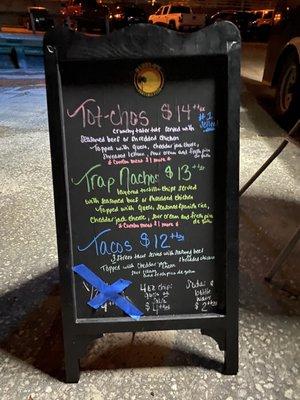 Tot-chos $14 +tax
#1 Seller!
Crunchy tater tots served with
seasoned beef or shredded chicken
Topped with queso, cheddar jack cheese,
shredded lettuce, sour cream and fresh pico
de gallo
* Combo meats $1 more *
Trap Nachos $13 +tax
layered tortilla chips served
with seasoned beef or shredded chicken
Topped with queso, seasoned Spanish rice,
cheddar jack cheese, sour cream and fresh pico
* Combo meats $1 more *
Tacos $12 +tax
3 tacos served with seasoned beef
or shredded chicken
Topped with cheddar
sour cream
and fresh pico de gallo
4oz chips
$4 +tax
Sodas &
bottle
water
$2 +tax